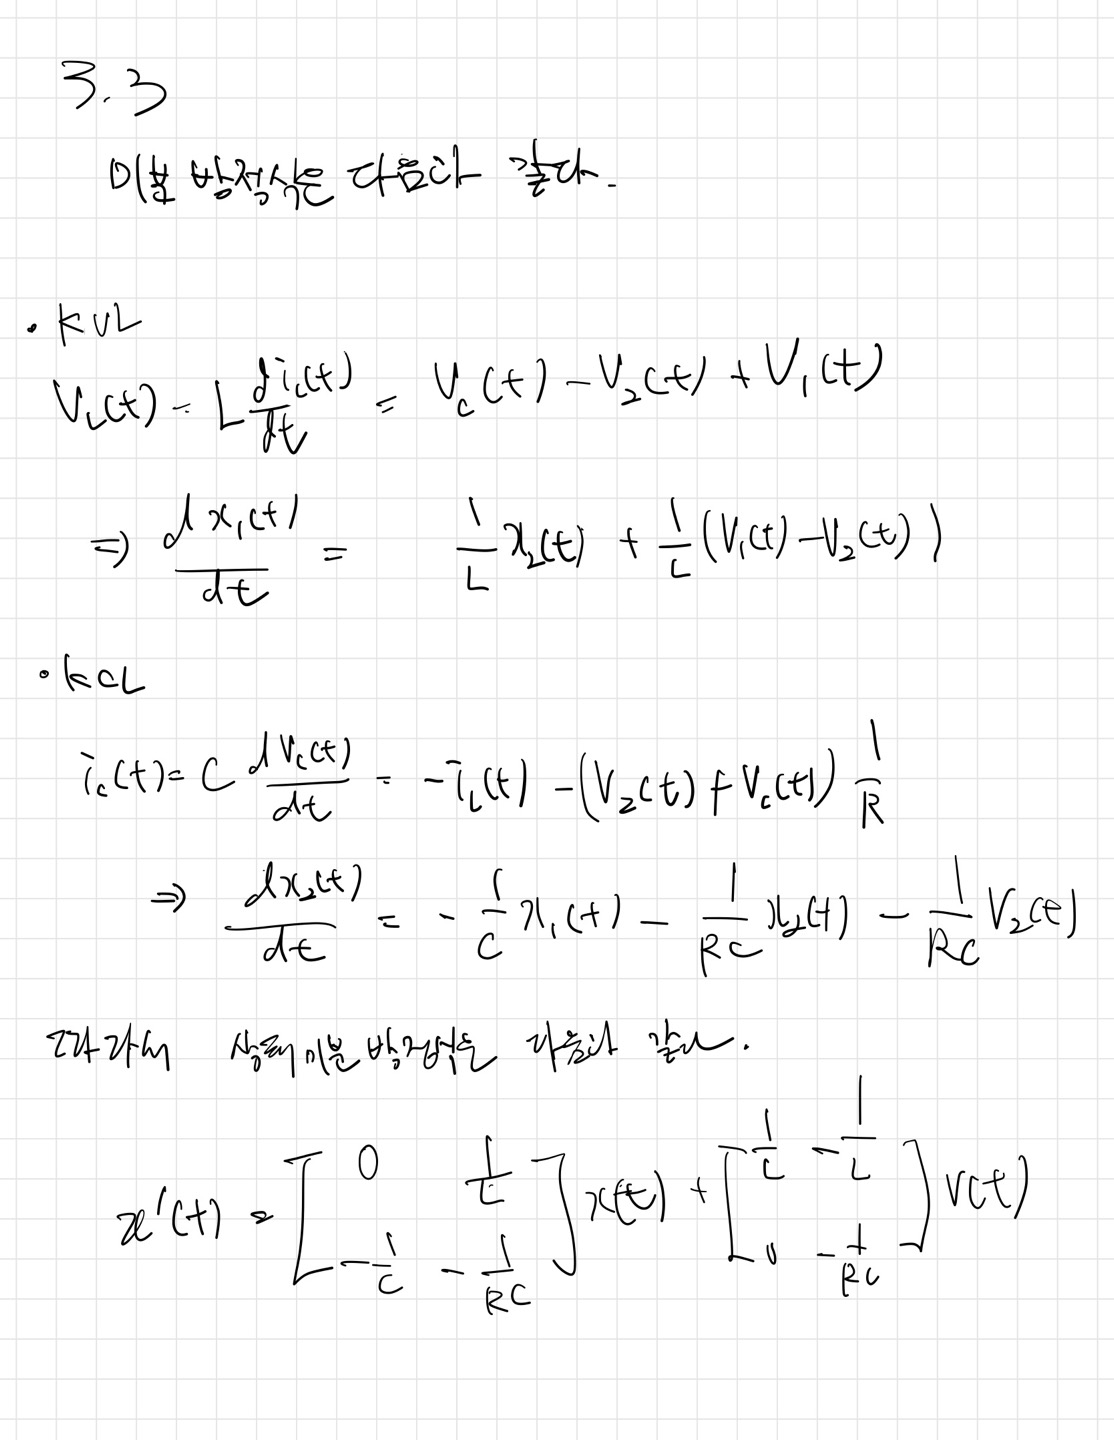 3.3
미분 방정식은 다음과 같다.
· KVL
V_L(t) = L di_L(t)/dt = V_c(t) - V_2(t) + V_1(t)
⇒ dx_1(t)/dt = 1/L x_2(t) + 1/L (V_1(t) - V_2(t))
· KCL
i_c(t) = C dV_c(t)/dt = -i_L(t) - (V_2(t) + V_c(t)) 1/R
⇒ dx_2(t)/dt = - 1/C x_1(t) - 1/RC x_2(t) - 1/RC V_2(t)
따라서 상태 미분 방정식은 다음과 같다.
x'(t) = [0 1/L; -1/C -1/RC] x(t) + [1/L -1/L; 0 -1/RC] V(t)